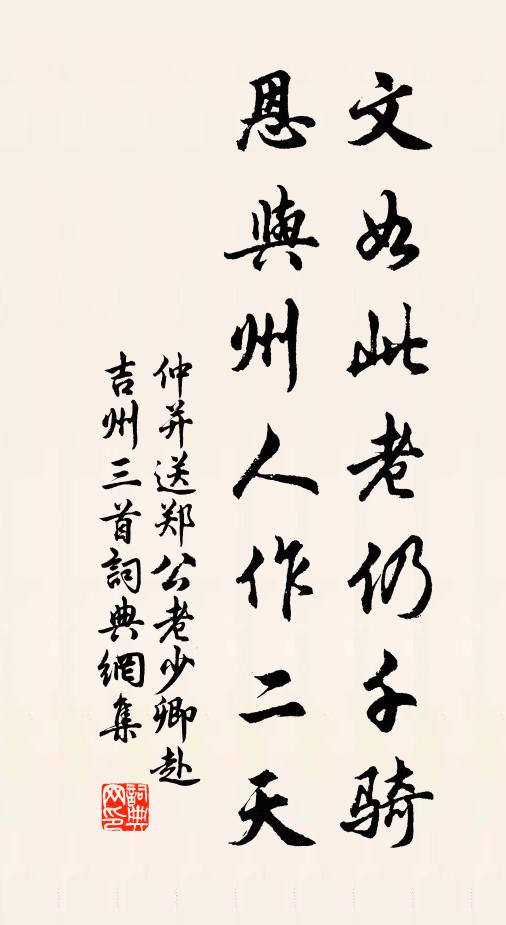 文如此老仍千骑
恩與州人作二天
仲并送郑公老少卿赴
吉州三首詞典網集
詞典網印